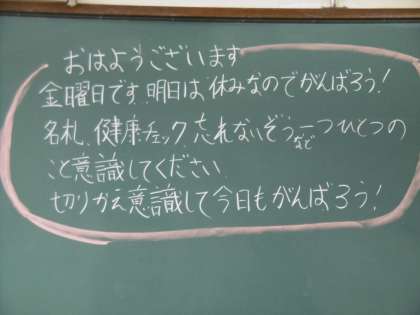 おはようございます
金曜日です、明日は休みなのでがんばろう!
名札、健康チェック、忘れないぞう、など一つひとつの
こと意識してください
切りかえ意識して今日もがんばろう!